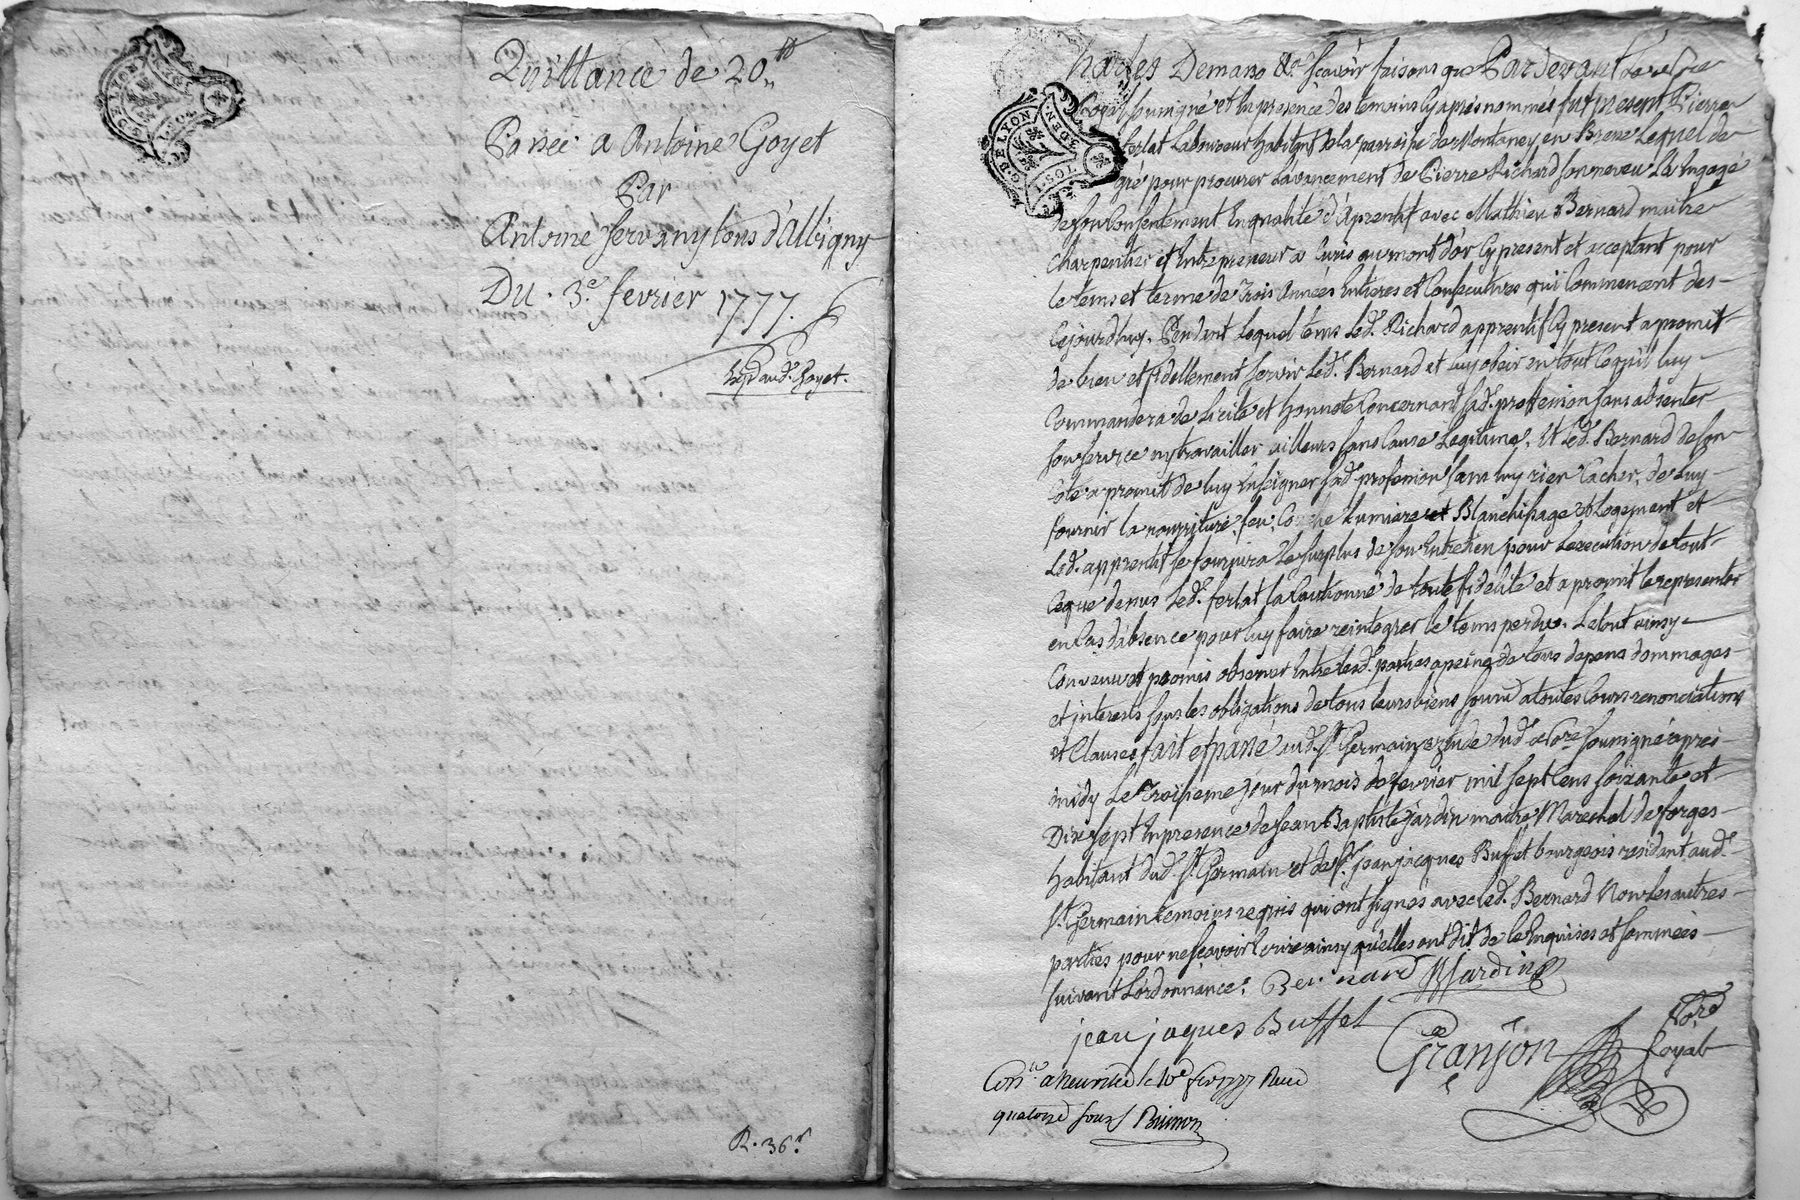 G. DE LYON
3. DEN.
2. SOLS
Quittance de 20.tt
Passée a Antoine Goyet
Par
Antoine Servan tous d'Albigny
Du. 3.e fevrier 1777.
Exp.d aud. Goyet.
R. 36.s
G. DE LYON
3. DEN.
harles Demano &a scavoir faisons que Pardevant le no.re
Royal soussigné et en presence des temoins cy apres nommés fut present Pierre
ferlat Laboureur habitant de la parroisse de Montaney en Bresse Lequel de
gré pour procurer Lavancement de Pierre Richard son neveu La Engagé
de son Consentement En qualité d'aprentif avec Mathieu Bernard maitre
Charpentier et Entrepreneur a Curis au mont d'or Cy present et acceptant pour
le tems et terme de Trois Années Entieres et Consecutives qui Commencent des-
Cejourdhuy. Pendant Lequel tems Led. Richard apprentif Cy present a promit
de bien et fidellement servir Led. Bernard et Luy obeir en tout Cequ'il luy
Commandera de Licite et honneste Concernant sad. profession sans absenter
son service ny travailler ailleurs sans Cause Legitime. Et Led. Bernard de son
Coté a promit de luy Enseigner sad. profession sans luy rien Cacher, de Luy
fournir la nourriture, feu, Couche Lumiere et Blanchissage et Logement et
Led. apprentif se fournira Le surplus de son Entretien, pour Lexecution de tout
Ceque dessus Led. ferlat La Cautionné de toute fidelité et a promit le representer
en Cas d'absence pour luy faire reintegrer le tems perdu. Le tout ainsy
Convenu et promis observer Entre lesd. parties a peine de tous depens dommages
et interests sous les obligations de tous leurs biens soumis a toutes Cours renonciations
et Clauses fait et passé aud. St Germain Etude dud. No.re soussigné apres
midy Le Troisieme jour du mois de fevrier mil sept Cens soixante et
Dix sept En presence de Jean Baptiste Jardin maitre Marechal de forges
habitant dud. St Germain et de Sr. Jean jacques Buffet bourgeois residant aud.
St Germain temoins requis qui ont signés avec Led. Bernard Non les autres
parties pour ne scavoir Ecrire ainsy qu'elles ont dit de ce Enquises et sommées
suivant L'ordonnance. Bernard Jardin
jean jaques Buffet
Granjon No.re Royal
Con.lé a Neuville le 10e fev 1777 Receu
quatorze sous